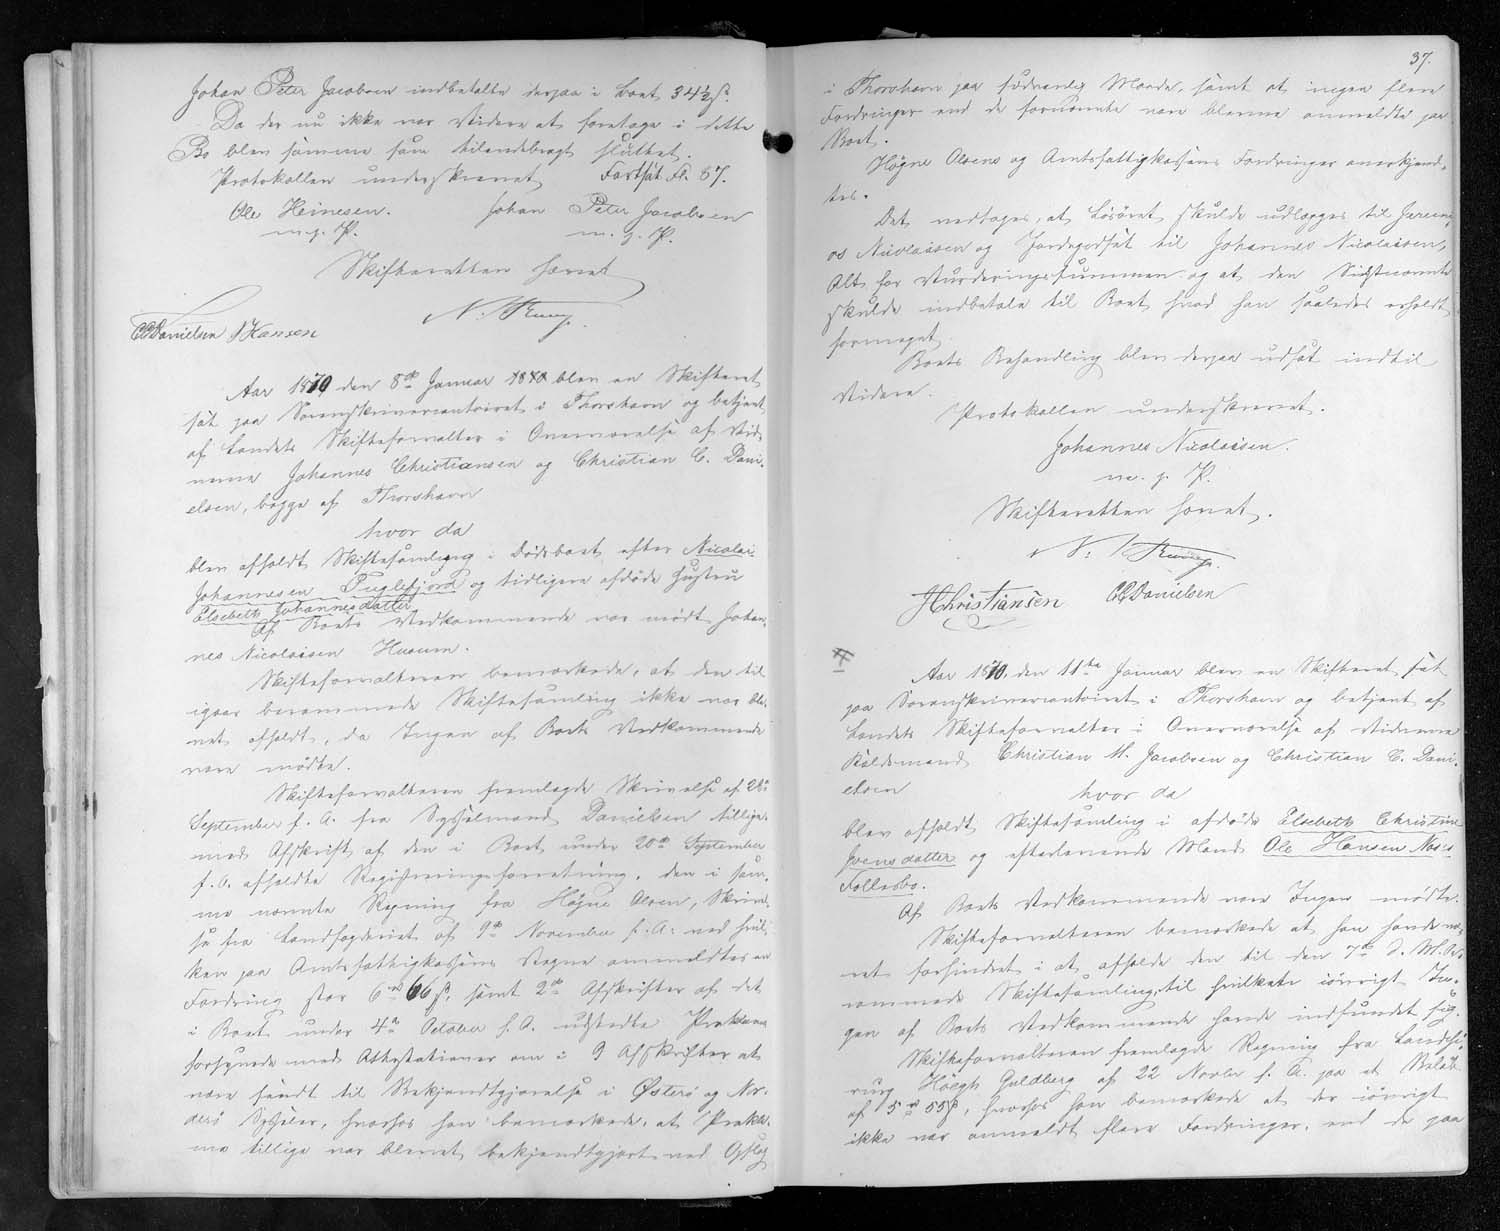 Johan Peter Jacobsen indbetalte derpaa i Boet 34½ ß.
Da der nu ikke var videre at foretage i dette
Bo blev samme som tilendebragt sluttet.
Protokollen underskrevet Fortsat Fl. 57.
Ole Heinesen. Johan Peter Jacobsen
m. f. P. m. f. P.
Skifteretten hævet
CCDanielsen JHansen
Aar 1870 den 8de Januar 1870 blev en Skifteret
sat paa Sorenskrivercontoiret i Thorshavn og betjent
af Landets Skifteforvalter i Overværelse af Vid-
nerne Johannes Christiansen og Christian C. Dani-
elsen, begge af Thorshavn
hvor da
blev afholdt Skiftesamling i Dødsboet efter Nicolai
Johannesen Fuglefjord og tidligere afdøde Hustru
Elsebeth Johannesdatter
Af Boets Vedkommende var mødt Johan-
nes Nicolaisen Husum.
Skifteforvalteren bemærkede, at den til
igaar berammede Skiftesamling ikke var ble-
vet afholdt, da Ingen af Boets Vedkommende
vare mødte.
Skifteforvalteren fremlagde Skrivelse af 28de
September f. A. fra Sysselmand Danielsen tillige-
med Afskrift af den i Boet under 20de September
f. A. afholdte Registreringsforretning, den i sam-
me nævnte Regning fra Høgne Olsen, Skrivel-
se fra Landfogderiet af 9de November f. A. ved hvil-
ken paa Amtsfattigkassens Vegne anmeldtes en
Fordring stor 6 rd 66 ß, samt 2de Afskrifter af det
i Boet under 4de October f. A. udstedte Proklama
forsynede med Attestationer om i 9 Afskrifter at
være sendt til Bekjendtgjørelse i Østerø og Nor-
derø Sysseler, hvorhos han bemærkede, at Prokla-
ma tillige var blevet bekjendtgjort ved Opslag
37.
i Thorshavn paa sædvanlig Maade, samt at ingen flere
Fordringer end de fornævnte vare blevne anmeldte paa
Boet.
Høgne Olsens og Amtsfattigkassens Fordringer anerkjend-
tes.
Det vedtoges, at Løsøret skulde udlægges til Jeremi-
as Nicolaisen og Jordegodset til Johannes Nicolaisen,
Alt for Vurderingssummen og at den Sidstnævnte
skulde indbetale til Boet hvad han saaledes erholdt
formeget.
Boets Behandling blev derpaa udsat indtil
Videre.
Protokollen underskrevet.
Johannes Nicolaisen.
m. f. P.
Skifteretten hævet.
JChristiansen CCDanielsen
Aar 1870, den 11te Januar blev en Skifteret sat
paa Sorenskrivercontoiret i Thorshavn og betjent af
Landets Skifteforvalter i Overværelse af Vidnerne
Christian M. Jacobsen og Christian C. Dani-
elsen
hvor da
blev afholdt Skiftesamling i afdøde Elsebeth Christine
Joensdatter og efterlevende Mand Ole Hansen Næs's
Fællesbo.
Af Boets Vedkommende vare Ingen mødte.
Skifteforvalteren bemærkede at han havde væ-
ret forhindret i at afholde den til den 7de d. M. be-
rammede Skiftesamling, til hvilken iøvrigt In-
gen af Boets Vedkommende havde indfundet sig.
Skifteforvalteren fremlagde Regning fra Landchi-
rurg Høegh Guldberg af 22 Novbr f. A. paa et Beløb
af 5 rd 55 ß, hvorhos han bemærkede at der iøvrigt
ikke var anmeldt flere Fordringer, end de paa